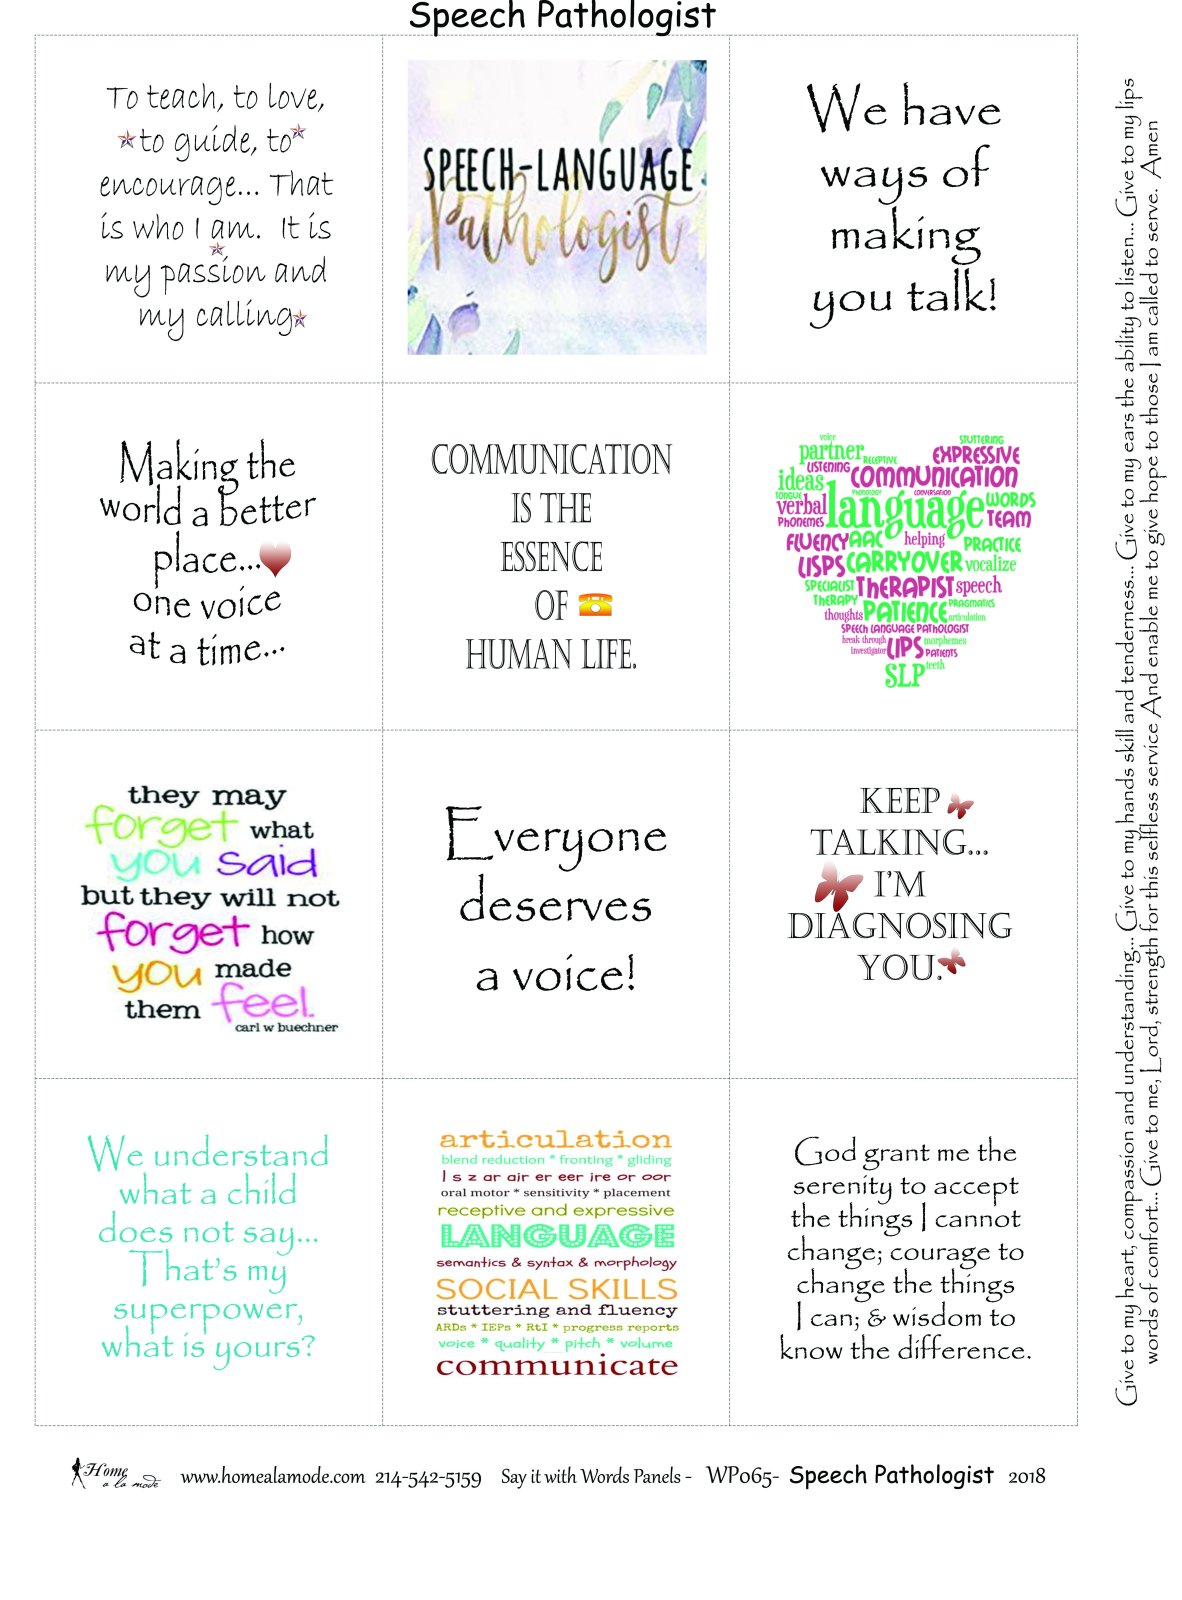 Speech Pathologist
To teach, to love,
to guide, to
encourage... That
is who I am. It is
my passion and
my calling
SPEECH-LANGUAGE
Pathologist
We have
ways of
making
you talk!
Making the
world a better
place...
one voice
at a time...
COMMUNICATION
IS THE
ESSENCE
OF
HUMAN LIFE.
voice
STUTTERING
partner
RECEPTIVE
EXPRESSIVE
LISTENING
COMMUNICATION
ideas
TONGUE
PHONOLOGY
CONVERSATION
verbal
language
WORDS
PHONEMES
TEAM
FLUENCY
AAC
helping
PRACTICE
LISPS
CARRYOVER
vocalize
SPECIALIST
THERAPIST
speech
THERAPY
PATIENCE
PRAGMATICS
thoughts
articulation
SPEECH LANGUAGE PATHOLOGIST
break through
LIPS
morphemes
investigator
PATIENTS
SLP
teeth
they may
forget what
you said
but they will not
forget how
you made
them feel.
carl w buechner
Everyone
deserves
a voice!
KEEP
TALKING...
I'M
DIAGNOSING
YOU.
We understand
what a child
does not say...
That's my
superpower,
what is yours?
articulation
blend reduction * fronting * gliding
l s z ar air er eer ire or oor
oral motor * sensitivity * placement
receptive and expressive
LANGUAGE
semantics & syntax & morphology
SOCIAL SKILLS
stuttering and fluency
ARDs * IEPs * RtI * progress reports
voice * quality * pitch * volume
communicate
God grant me the
serenity to accept
the things I cannot
change; courage to
change the things
I can; & wisdom to
know the difference.
Give to my heart, compassion and understanding... Give to my hands skill and tenderness... Give to my ears the ability to listen... Give to my lips
words of comfort... Give to me, Lord, strength for this selfless service And enable me to give hope to those I am called to serve. Amen
Home
a la mode
www.homealamode.com 214-542-5159 Say it with Words Panels - WP065- Speech Pathologist 2018